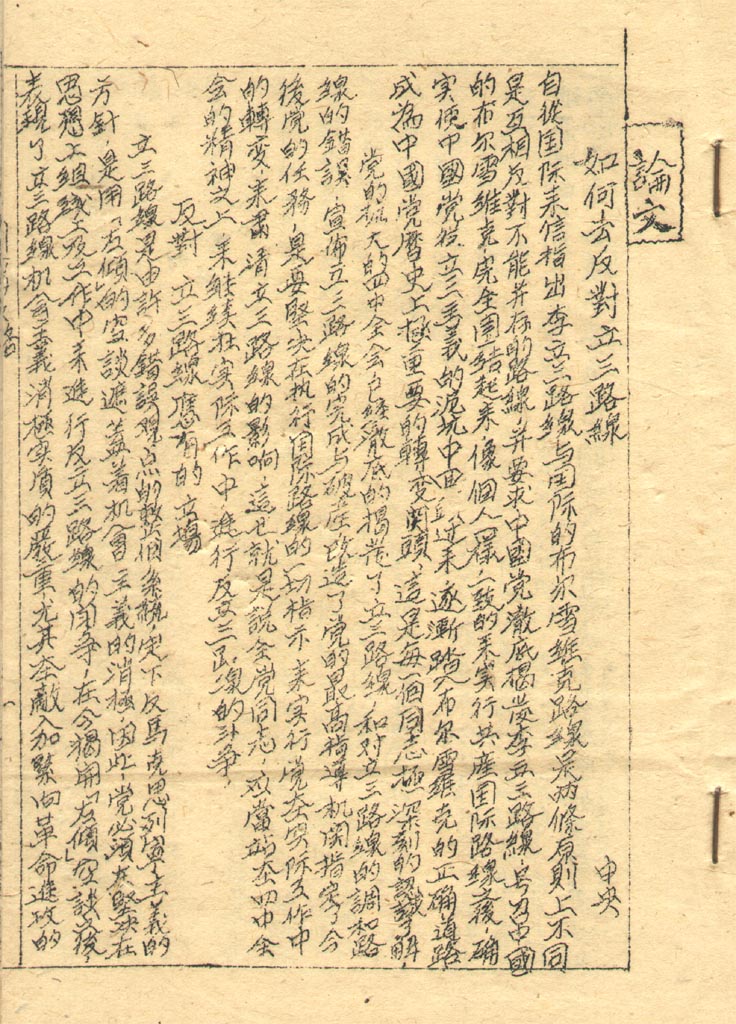 論文
如何去反對立三路線
中央
自從国际来信指出李立三路線与国际的布尔雪維克路線是兩條原則上不同
是互相反對不能并存的路線，并要求中國党澈底揭發李立三路線，号召中國
的布尔雪維克完全团结起来，像個人一樣一致的来实行共產国际路線之後，确
实使中國党從立三主義的泥坑中 逐漸踏入布尔雪維克的正确道路
成為中國党曆史上極重要的轉变関頭，這是每一個同志極深刻的認識了解，
党的 大的四中全会已經澈底的揭發了立三路線，和对立三路線的調和路
線的錯誤，宣佈立三路線的完成与破產改造了党的最高指導机関指定了今
後党的任務，是要堅决在执行国际路線的一切指示来实行党在实际工作中
的轉变，来肅清立三路線的影响，這也就是說全党同志，应當站在四中全
会的精神之上，来継续在实际工作中，進行反立三路線的斗争，
反對立三路線應有的立場
立三路線是由許多錯誤观点的整個系統，定下反馬克思列寧主義的
方針，是用「左傾」的空談遮蓋着机會主義的消極，因此，党必須 堅决在
思想上組織上及工作中来進行反立三路線的闭争，在今揭開「左傾」空談之後，
表現了立三路線机会主義消極实质的嚴重，尤其在敵人加緊向革命進攻的